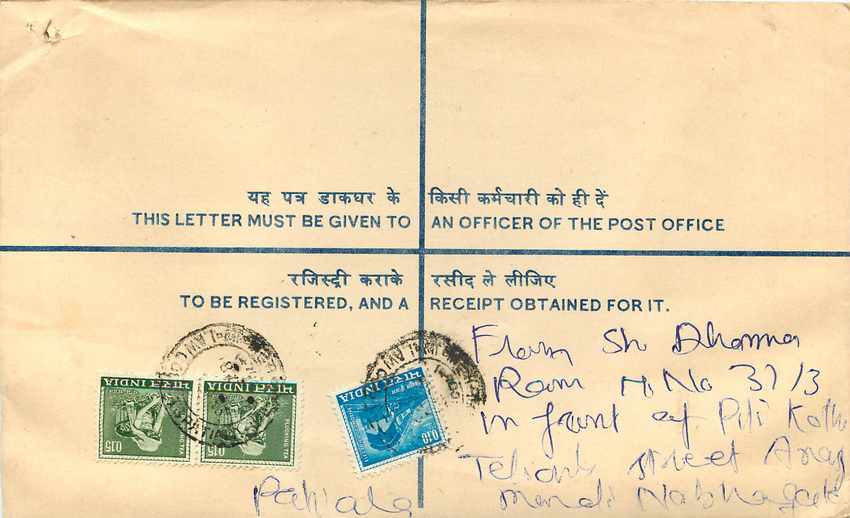 यह पत्र डाकघर के किसी कर्मचारी को ही दें
THIS LETTER MUST BE GIVEN TO AN OFFICER OF THE POST OFFICE
रजिस्ट्री कराके रसीद ले लीजिए
TO BE REGISTERED, AND A RECEIPT OBTAINED FOR IT.
From Sh Dharma
Ram H No 37/3
in front of Pili Kothi
street
भारत INDIA
0.15
PLUCKING TEA
भारत INDIA
0.15
PLUCKING TEA
भारत INDIA
0.10